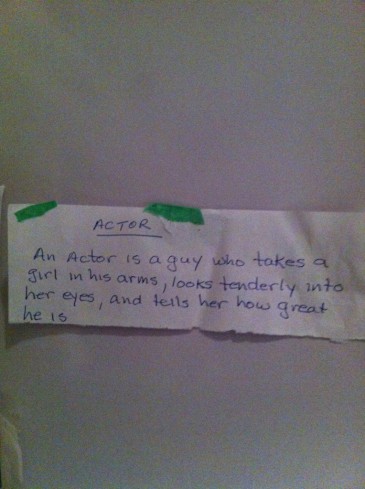 ACTOR
An Actor is a guy who takes a
girl in his arms, looks tenderly into
her eyes, and tells her how great
he is